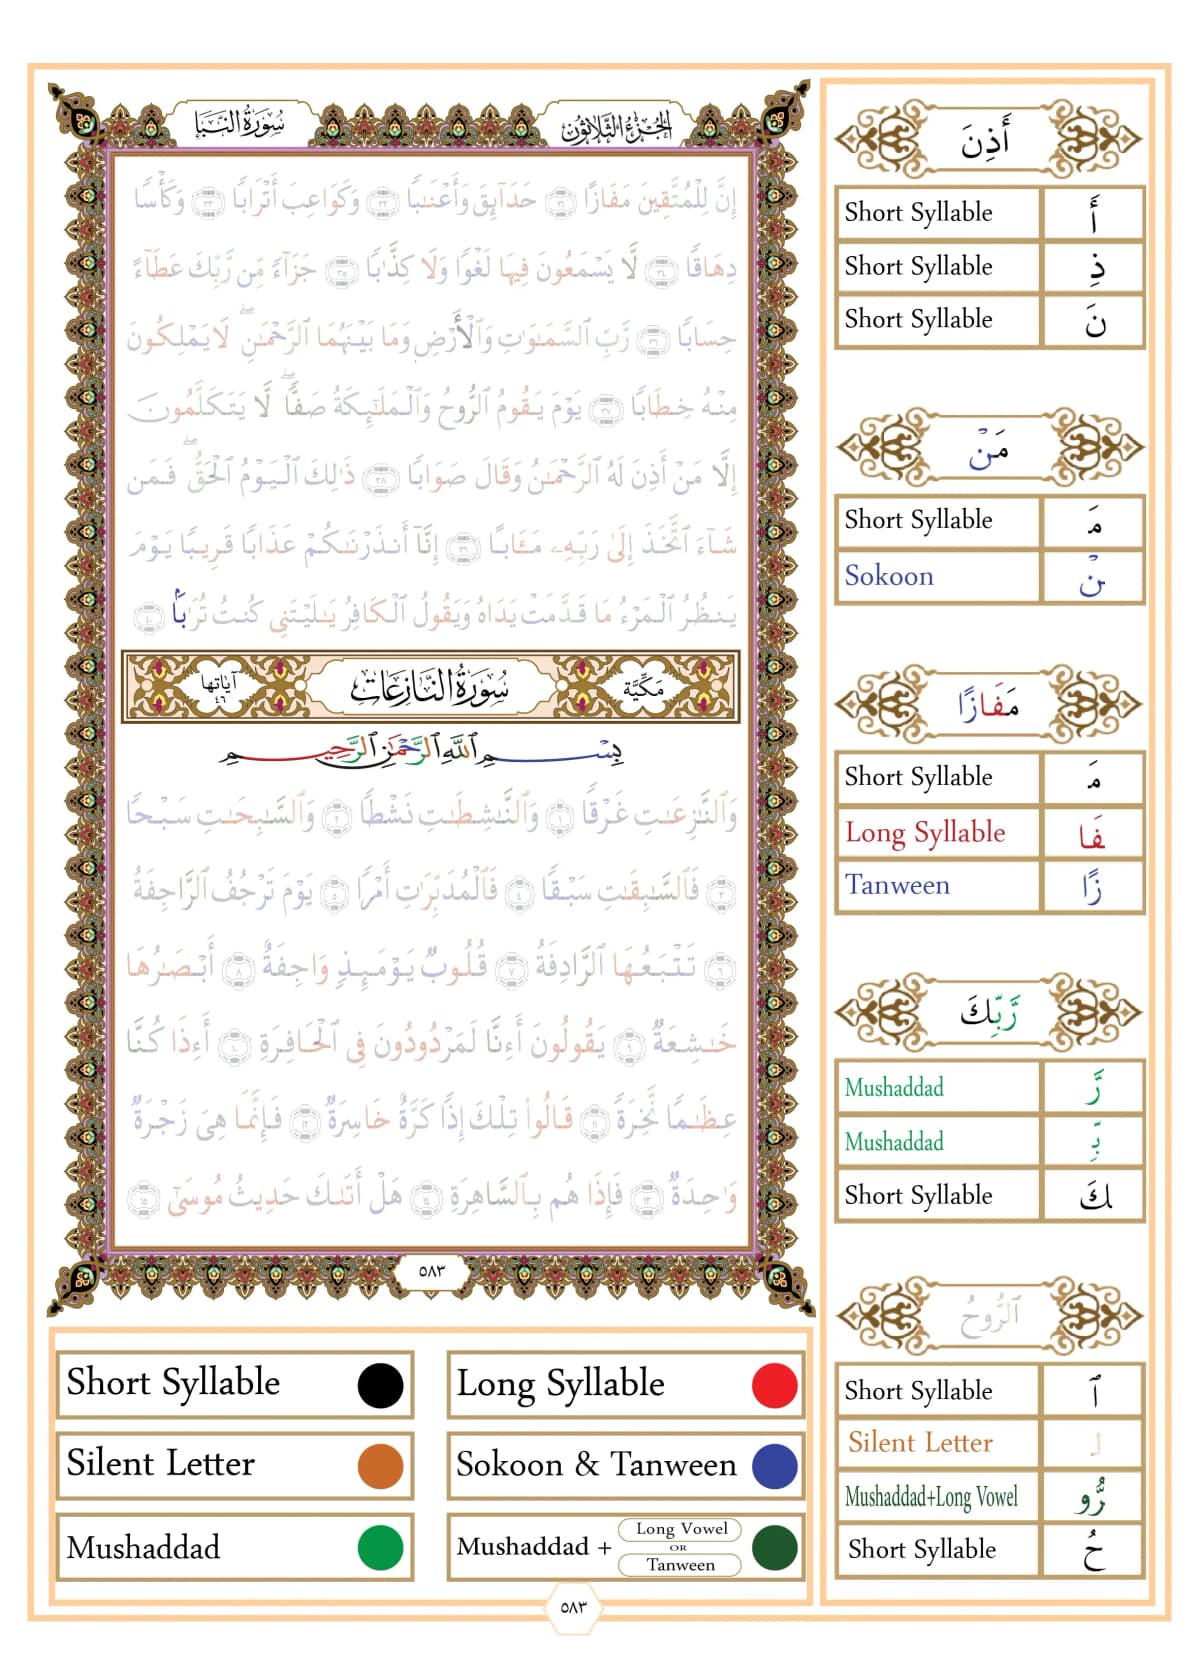 سُورَةُ النَّبَإِ
الجُزْءُ الثَّلَاثُونَ
إِنَّ لِلْمُتَّقِينَ مَفَازًا ٣١ حَدَآئِقَ وَأَعْنَٰبًا ٣٢ وَكَوَاعِبَ أَتْرَابًا ٣٣ وَكَأْسًا
دِهَاقًا ٣٤ لَّا يَسْمَعُونَ فِيهَا لَغْوًا وَلَا كِذَّٰبًا ٣٥ جَزَآءً مِّن رَّبِّكَ عَطَآءً
حِسَابًا ٣٦ رَّبِّ ٱلسَّمَٰوَٰتِ وَٱلْأَرْضِ وَمَا بَيْنَهُمَا ٱلرَّحْمَٰنِۖ لَا يَمْلِكُونَ
مِنْهُ خِطَابًا ٣٧ يَوْمَ يَقُومُ ٱلرُّوحُ وَٱلْمَلَٰٓئِكَةُ صَفًّاۖ لَّا يَتَكَلَّمُونَ
إِلَّا مَنْ أَذِنَ لَهُ ٱلرَّحْمَٰنُ وَقَالَ صَوَابًا ٣٨ ذَٰلِكَ ٱلْيَوْمُ ٱلْحَقُّۖ فَمَن
شَآءَ ٱتَّخَذَ إِلَىٰ رَبِّهِۦ مَـَٔابًا ٣٩ إِنَّآ أَنذَرْنَٰكُمْ عَذَابًا قَرِيبًا يَوْمَ
يَنظُرُ ٱلْمَرْءُ مَا قَدَّمَتْ يَدَاهُ وَيَقُولُ ٱلْكَافِرُ يَٰلَيْتَنِى كُنتُ تُرَٰبًۢا ٤٠
مَكِّيَّة
سُورَةُ النَّازِعَاتِ
آيَاتها ٤٦
بِسْمِ ٱللَّهِ ٱلرَّحْمَٰنِ ٱلرَّحِيمِ
وَٱلنَّٰزِعَٰتِ غَرْقًا ١ وَٱلنَّٰشِطَٰتِ نَشْطًا ٢ وَٱلسَّٰبِحَٰتِ سَبْحًا
٣ فَٱلسَّٰبِقَٰتِ سَبْقًا ٤ فَٱلْمُدَبِّرَٰتِ أَمْرًا ٥ يَوْمَ تَرْجُفُ ٱلرَّاجِفَةُ
٦ تَتْبَعُهَا ٱلرَّادِفَةُ ٧ قُلُوبٌ يَوْمَئِذٍ وَاجِفَةٌ ٨ أَبْصَٰرُهَا
خَٰشِعَةٌ ٩ يَقُولُونَ أَءِنَّا لَمَرْدُودُونَ فِى ٱلْحَافِرَةِ ١٠ أَءِذَا كُنَّا
عِظَٰمًا نَّخِرَةً ١١ قَالُوا۟ تِلْكَ إِذًا كَرَّةٌ خَاسِرَةٌ ١٢ فَإِنَّمَا هِىَ زَجْرَةٌ
وَٰحِدَةٌ ١٣ فَإِذَا هُم بِٱلسَّاهِرَةِ ١٤ هَلْ أَتَىٰكَ حَدِيثُ مُوسَىٰٓ ١٥
٥٨٣
Short Syllable
Long Syllable
Silent Letter
Sokoon & Tanween
Mushaddad
Mushaddad + Long Vowel OR Tanween
٥٨٣
أَذِنَ
Short Syllable أَ
Short Syllable ذِ
Short Syllable نَ
مَنْ
Short Syllable مَ
Sokoon نْ
مَفَازًا
Short Syllable مَ
Long Syllable فَا
Tanween زًا
رَّبِّكَ
Mushaddad رَّ
Mushaddad بِّ
Short Syllable كَ
ٱلرُّوحُ
Short Syllable ٱ
Silent Letter ل
Mushaddad+Long Vowel رُّو
Short Syllable حُ